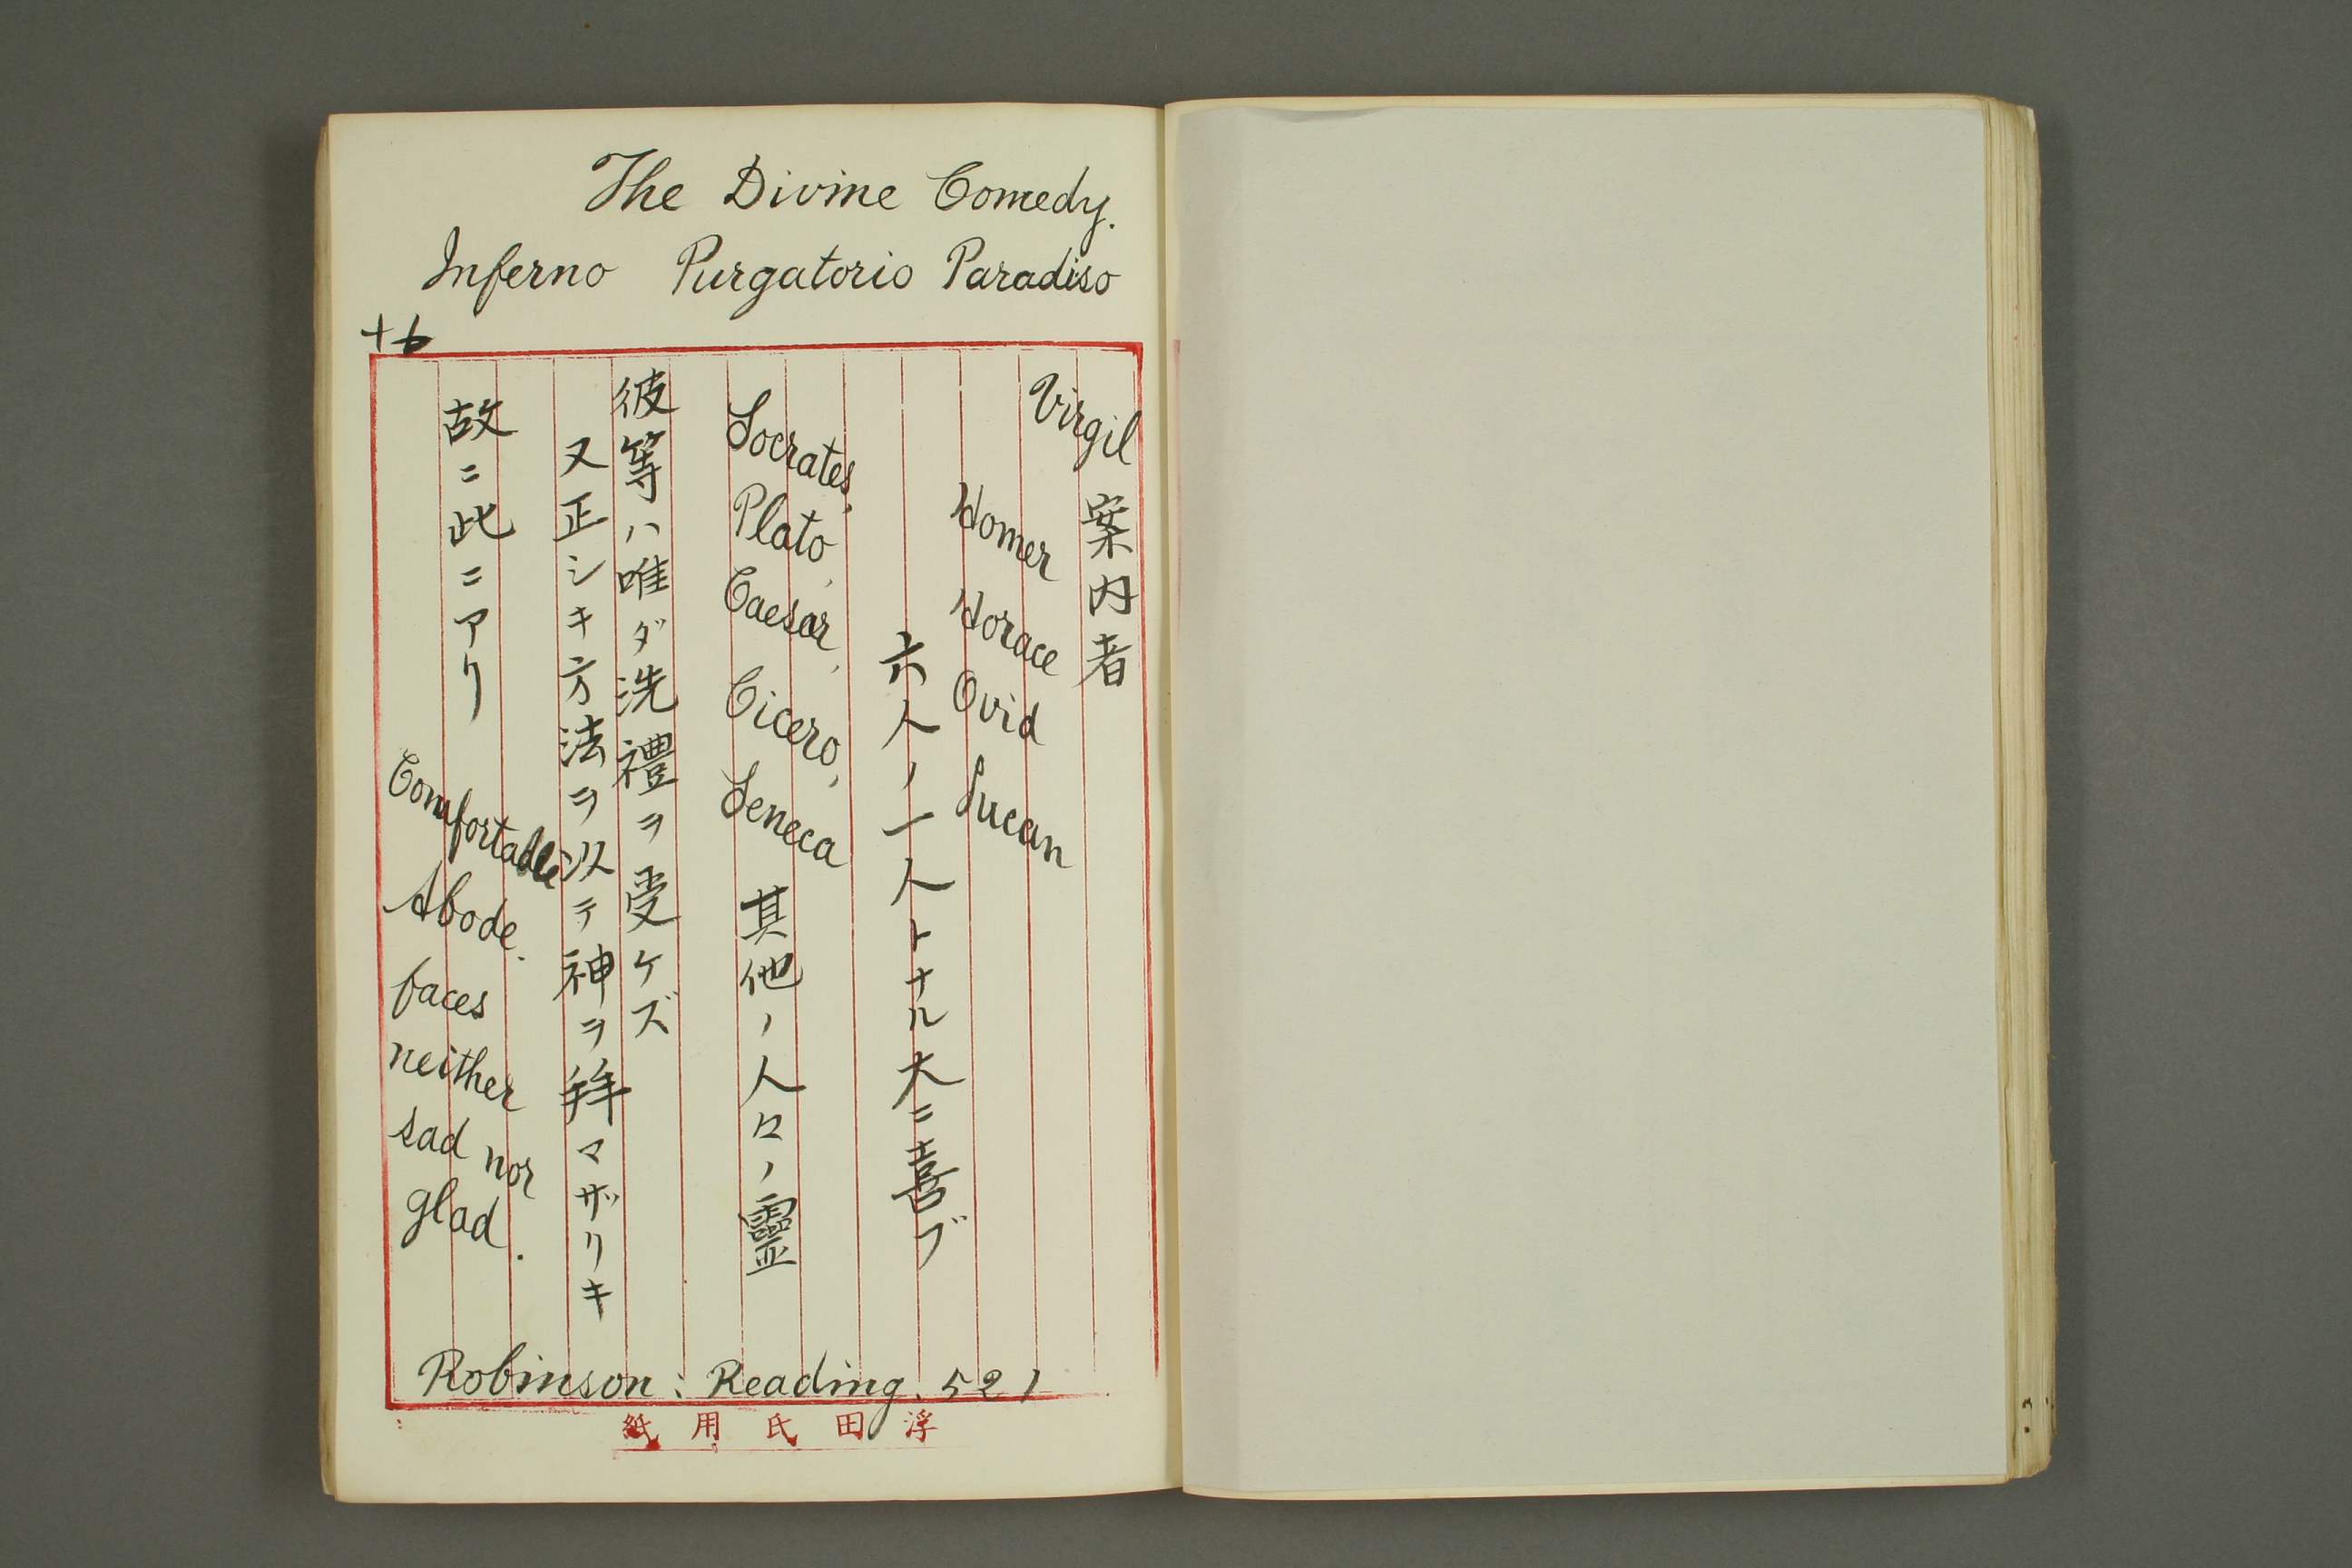 The Divine Comedy.
Inferno Purgatorio Paradiso
Virgil 案内者
Homer Horace Ovid Lucan
六人ノ一人トナル大ニ喜ブ
Socrates, Plato, Caesar, Cicero, Seneca 其他ノ人々ノ靈
彼等ハ唯ダ洗禮ヲ受ケズ
又正シキ方法ヲ以テ神ヲ拜マザリキ
故ニ此ニアリ
Comfortable
Abode.
faces
neither
sad nor
glad.
Robinson: Reading. 521
紙用氏田浮